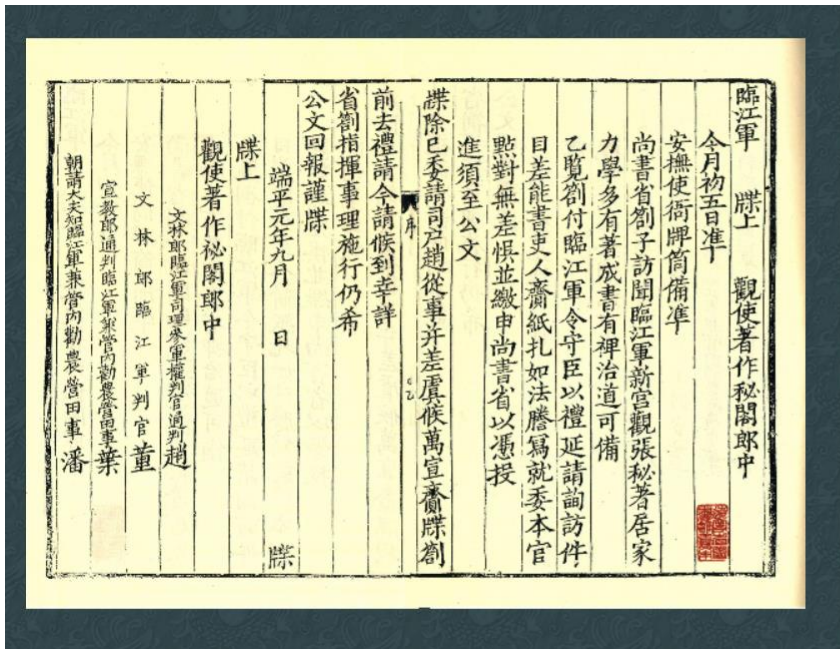 臨江軍 牒上 觀使著作秘閣郎中
今月初五日準
安撫使衙牌筒備準
尚書省劄子訪聞臨江軍新宮觀張秘著居家
力學多有著成書有裨治道可備
乙覽劄付臨江軍令守臣以禮延請詢訪件
目差能書吏人齎紙札如法謄寫就委本官
點對無差悞並繳申尚書省以憑投
進須至公文
牒除已委請司户趙從事并差虞候萬宣齎牒劄
序
前去禮請今請候到幸詳
省劄指揮事理施行仍希
公文回報謹牒
端平元年九月 日 牒
牒上
觀使著作祕閣郎中
文林郎臨江軍司理參軍權判官過判趙
文林郎臨江軍判官董
宣教郎通判臨江軍兼管內勸農營田事葉
朝請大夫知臨江軍兼管內勸農營田事潘